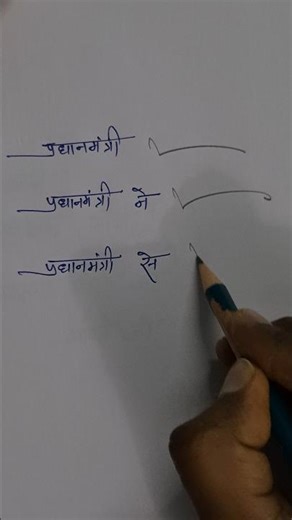 प्रधानमंत्री
प्रधानमंत्री ने
प्रधानमंत्री से